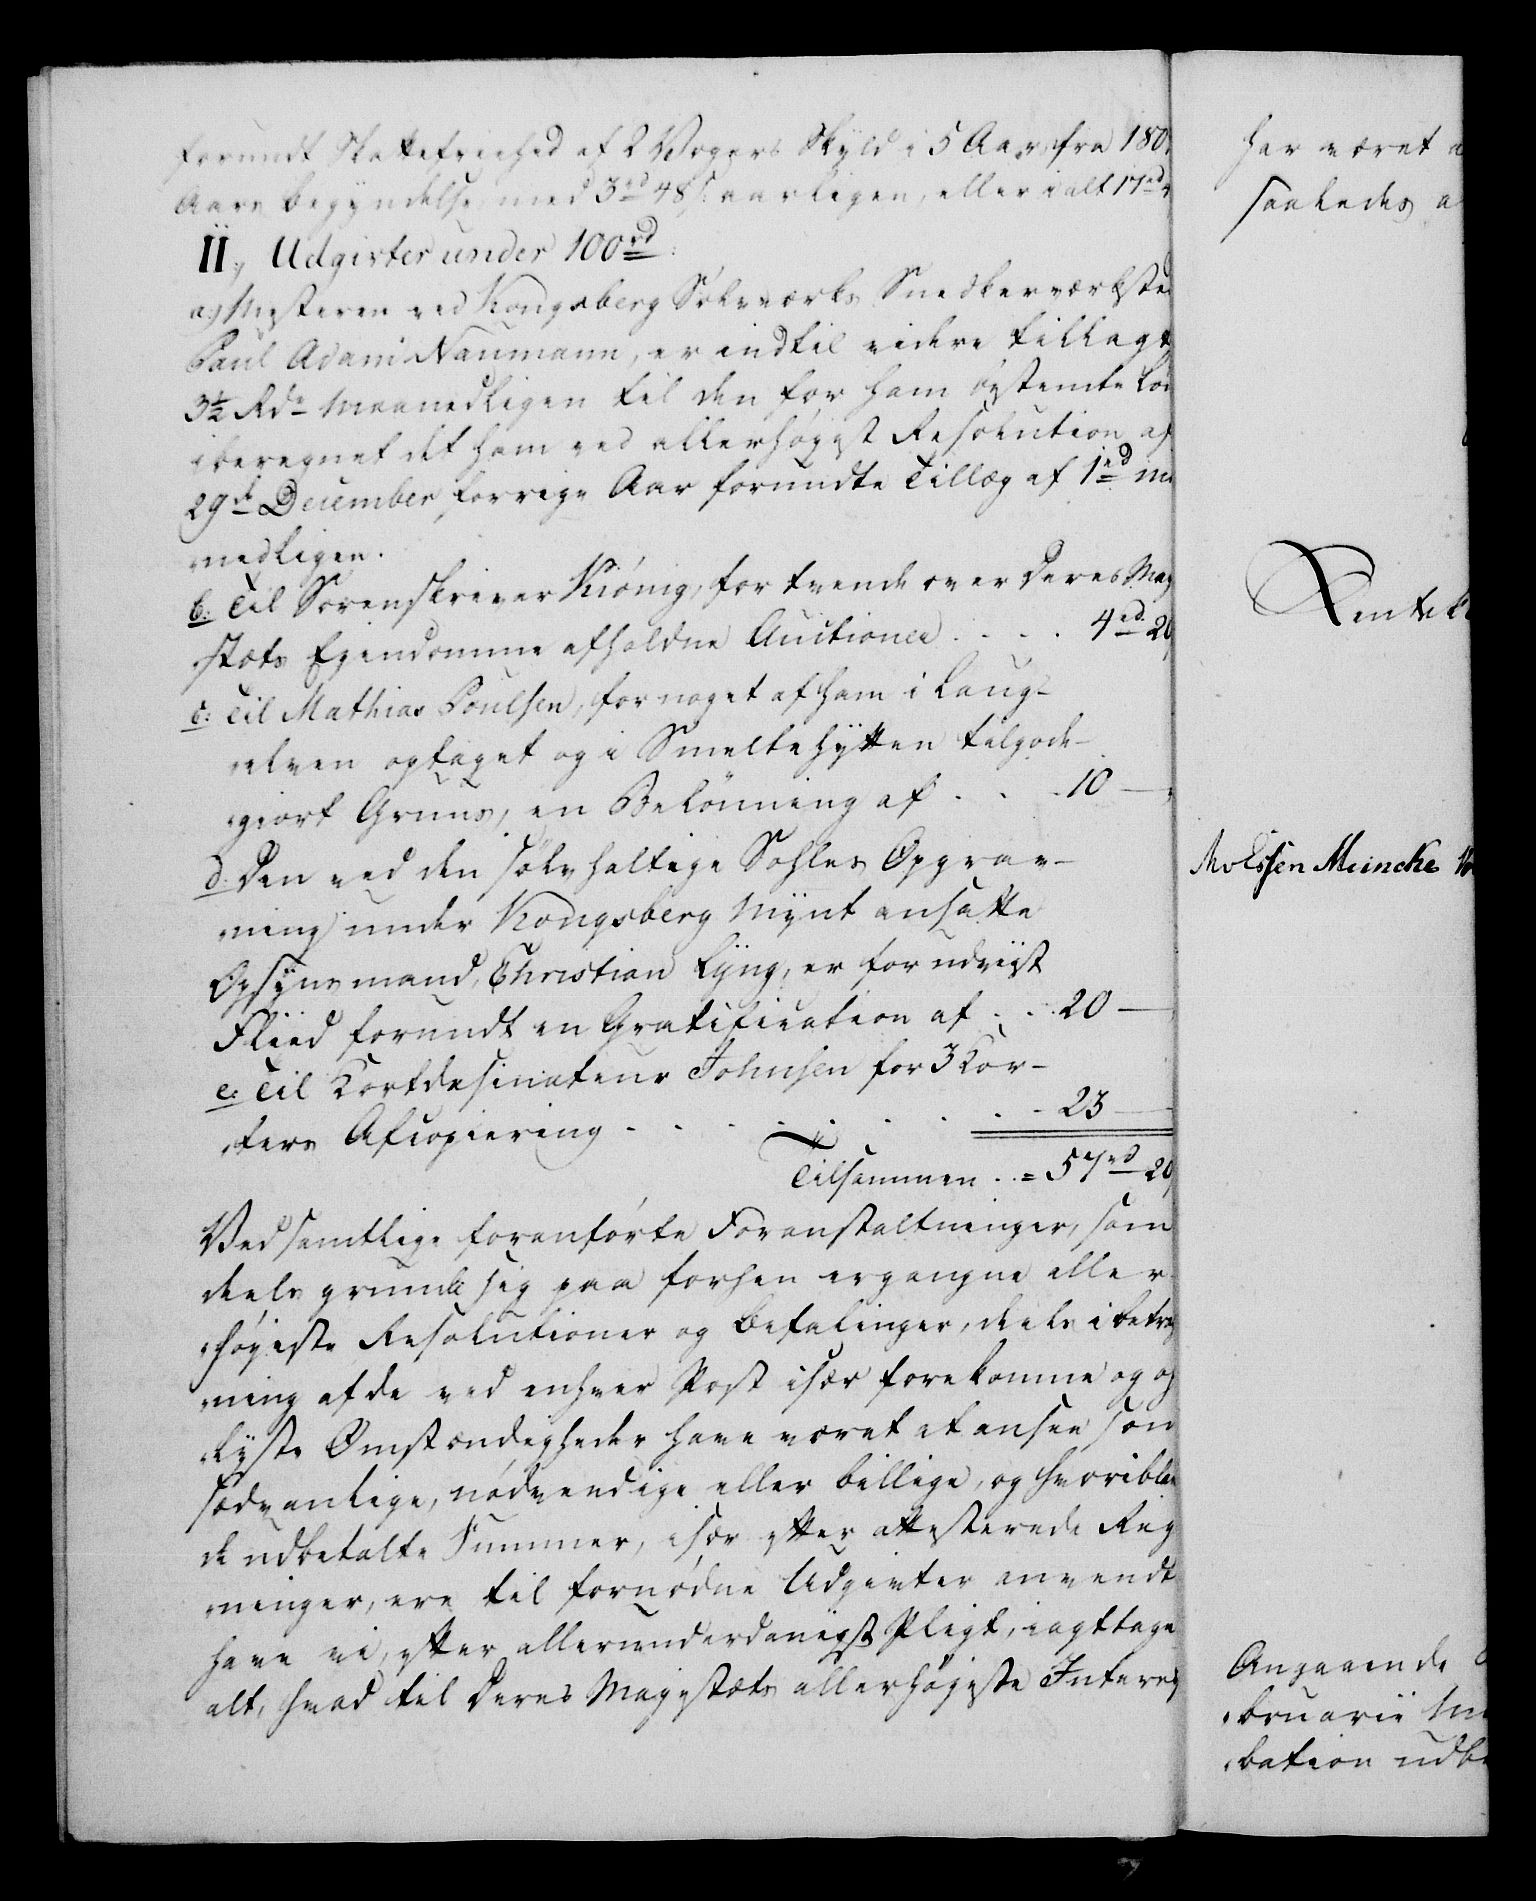 forundt Skattefriehed af 2 Vogers Skyld i 5 Aar, fra 180
Aars begyndelse med 3rd 48 s: aarligen, eller i alt 17rd
II, Udgifter under 100rd:
a,) Mesteren ved Kongsberg Sølvværks Snedkerværkste
Paul Adam Naumann, er indtil videre tillagt
3½ Rdr Maanedligen til den for ham bestemte Løn
iberegnet det ham ved allerhøyest Resolution af
29de December forrige Aar forundte Tillæg af 1rd m
nedligen.
b: Til Sorenskriver Kiönig, for tvende over Deres May
stæts Eyendomme afholdne Auctioner . . . . 4rd 20
c: Til Mathias Poulsen, for noget af ham i Laug-
elven optaget og i Smeltehytten tilgode-
giort Gruus, en Belønning af . . . 10 —
d. Den ved den sølvholtige Sohles Opgrav-
ning under Kongsberg Mynt ansatte
Opsynsmand, Christian Lyng, er for udviist
Fliid forundt en Gratification af . . . 20 —
e: Til Kortdesinateur Johnsen for 3 Kor-
ters Afcopiering . . . . . . . . 23 —
Tilsammen . . = 57rd 20
Ved samtlige foranførte Foranstaltninger, som
deels grunde sig paa forhen ergangne aller
høyeste Resolutioner og Befalinger, deels i betrag
ning af de ved enhver Post især forekomne og op
lyste Omstændigheder have været at ansee som
sædvanlige, nødvendige eller billige, og hvoriblan
de udbetalte Summer, især efter attesterede Reg
ninger, ere til fornødne Udgivter anvendt
have vi, efter allerunderdanigst Pligt, iagttage
alt, hvad til Deres Mayestæts allerhøyeste Interes
har været a
saaledes a
Rentek
MvEssen Meincke
Angaaende
bruarii
bation udb